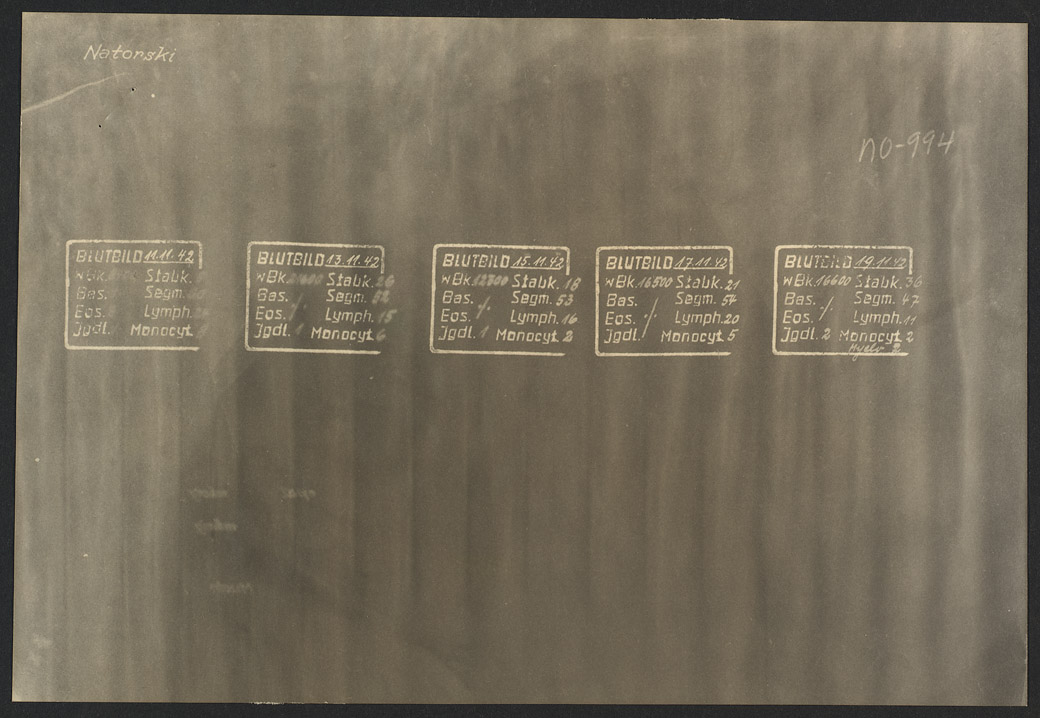 Natorski
NO-994
BLUTBILD 11.11.42
wBk. Stabk.
Bas. Segm.
Eos. Lymph.
Jgdl. Monocyt
BLUTBILD 13.11.42
wBk. Stabk. 26
Bas. ·/· Segm. 52
Eos. Lymph. 15
Jgdl. 1 Monocyt 6
BLUTBILD 15.11.42
wBk. 12700 Stabk. 18
Bas. ·/· Segm. 53
Eos. Lymph. 16
Jgdl. 1 Monocyt 2
BLUTBILD 17.11.42
wBk. 16500 Stabk. 21
Bas. / Segm. 54
Eos. ·/· Lymph. 20
Jgdl. Monocyt 5
BLUTBILD 19.11.42
wBk. 16600 Stabk. 36
Bas. ·/· Segm. 47
Eos. Lymph. 11
Jgdl. 2 Monocyt 2
Myelo 2